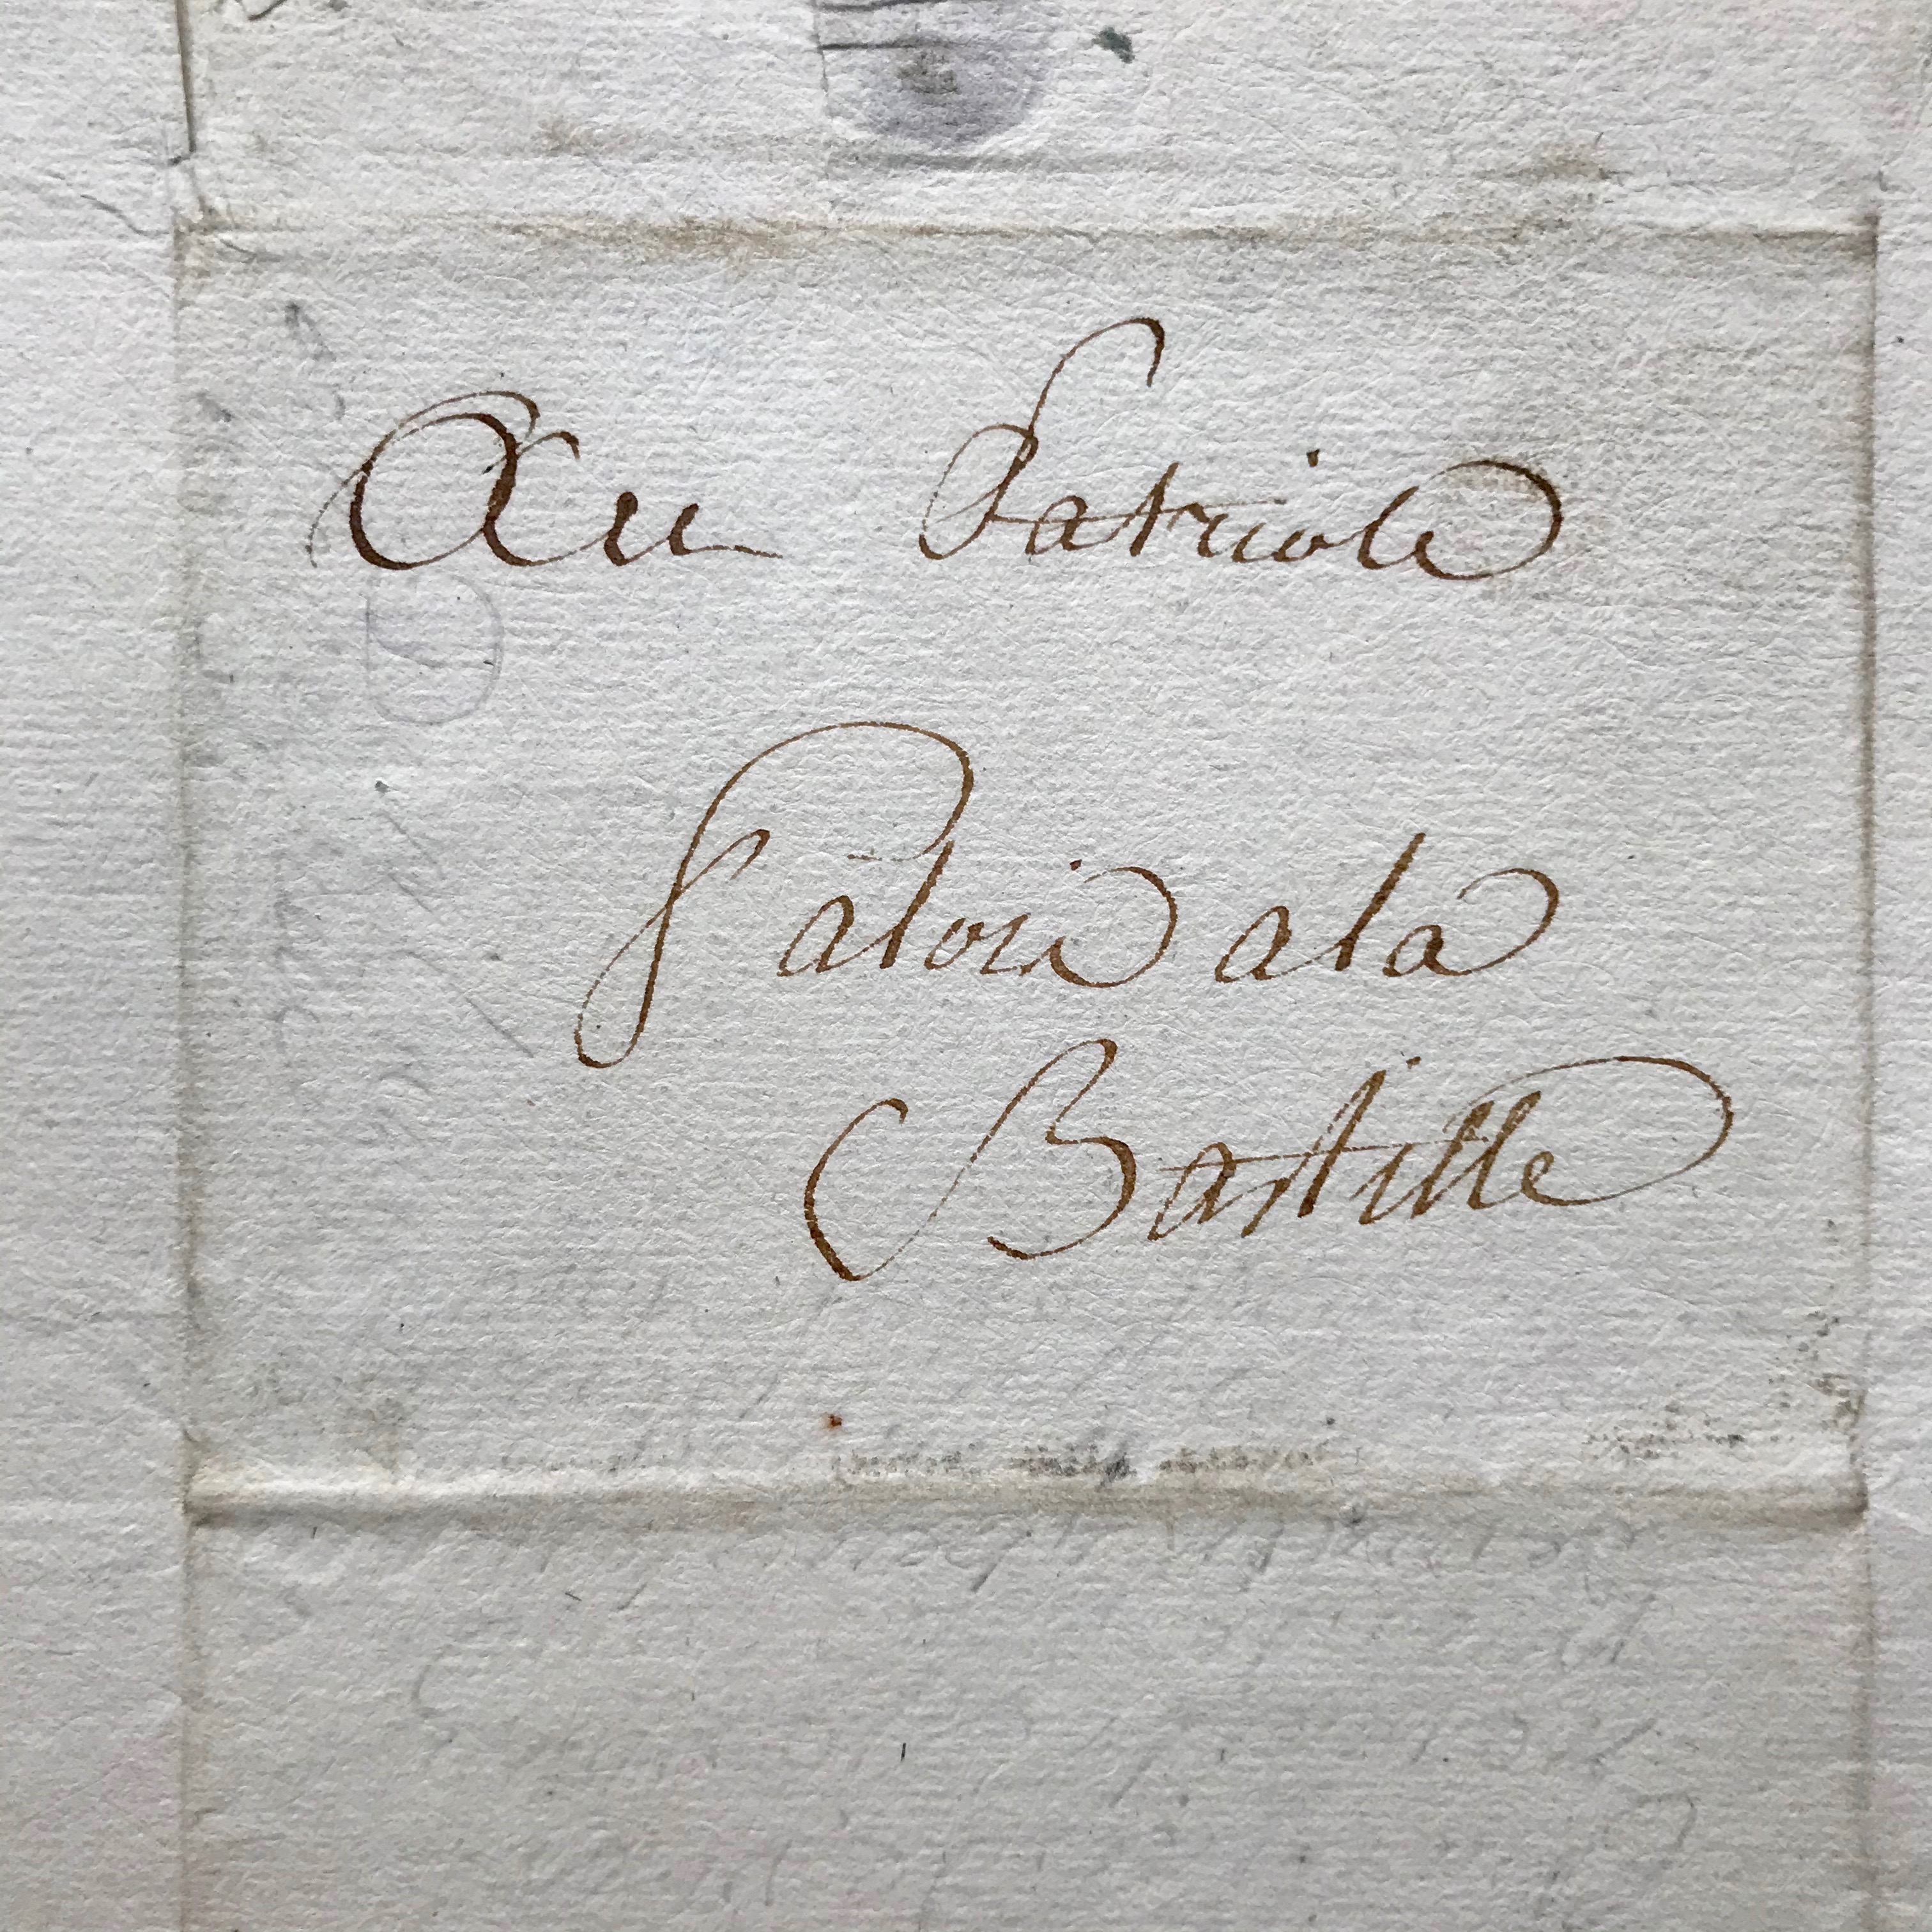 Au Patriote
Paloi a la
Bastille